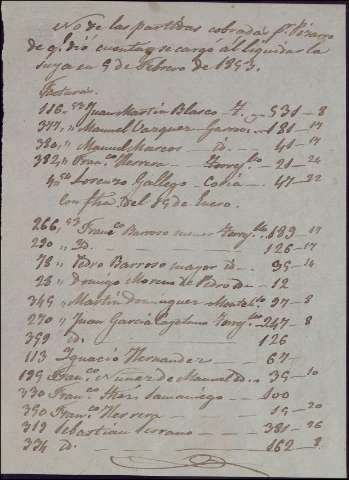 No de las partidas cobradas pr. Pizarro
de qe. dió cuenta, y se cargó al liquidar la
suya en 9 de Febrero de 1853.
Factura.
116 " Juan Martin Blasco T. 531-8
377 " Manuel Vazquez 181-17
380 " Manuel Marcos id. 41-17
382 " Franco. Herrera Torrejlo. 21-24
Lorenzo Gallego Coria 47-22
con fha. del 15 de Enero.
266 Franco. Barroso menor Torrejlo. 189-17
290 " Id. 126-17
78 " Pedro Barroso mayor id. 35-14
28 " Domingo Moreno de Pedro id. 12
345 " Martin Dominguez 97-8
270 " Juan Garcia Cayetano Torrejlo. 247-8
359 id. 126
113 Ignacio Hernandez 67
195 Franco. Nuñez de Manuel id. 35-10
330 Franco. Samaniego 100
350 Franco. Herrera 15-20
319 Sebastian Serrano 381-26
334 id. 162-8